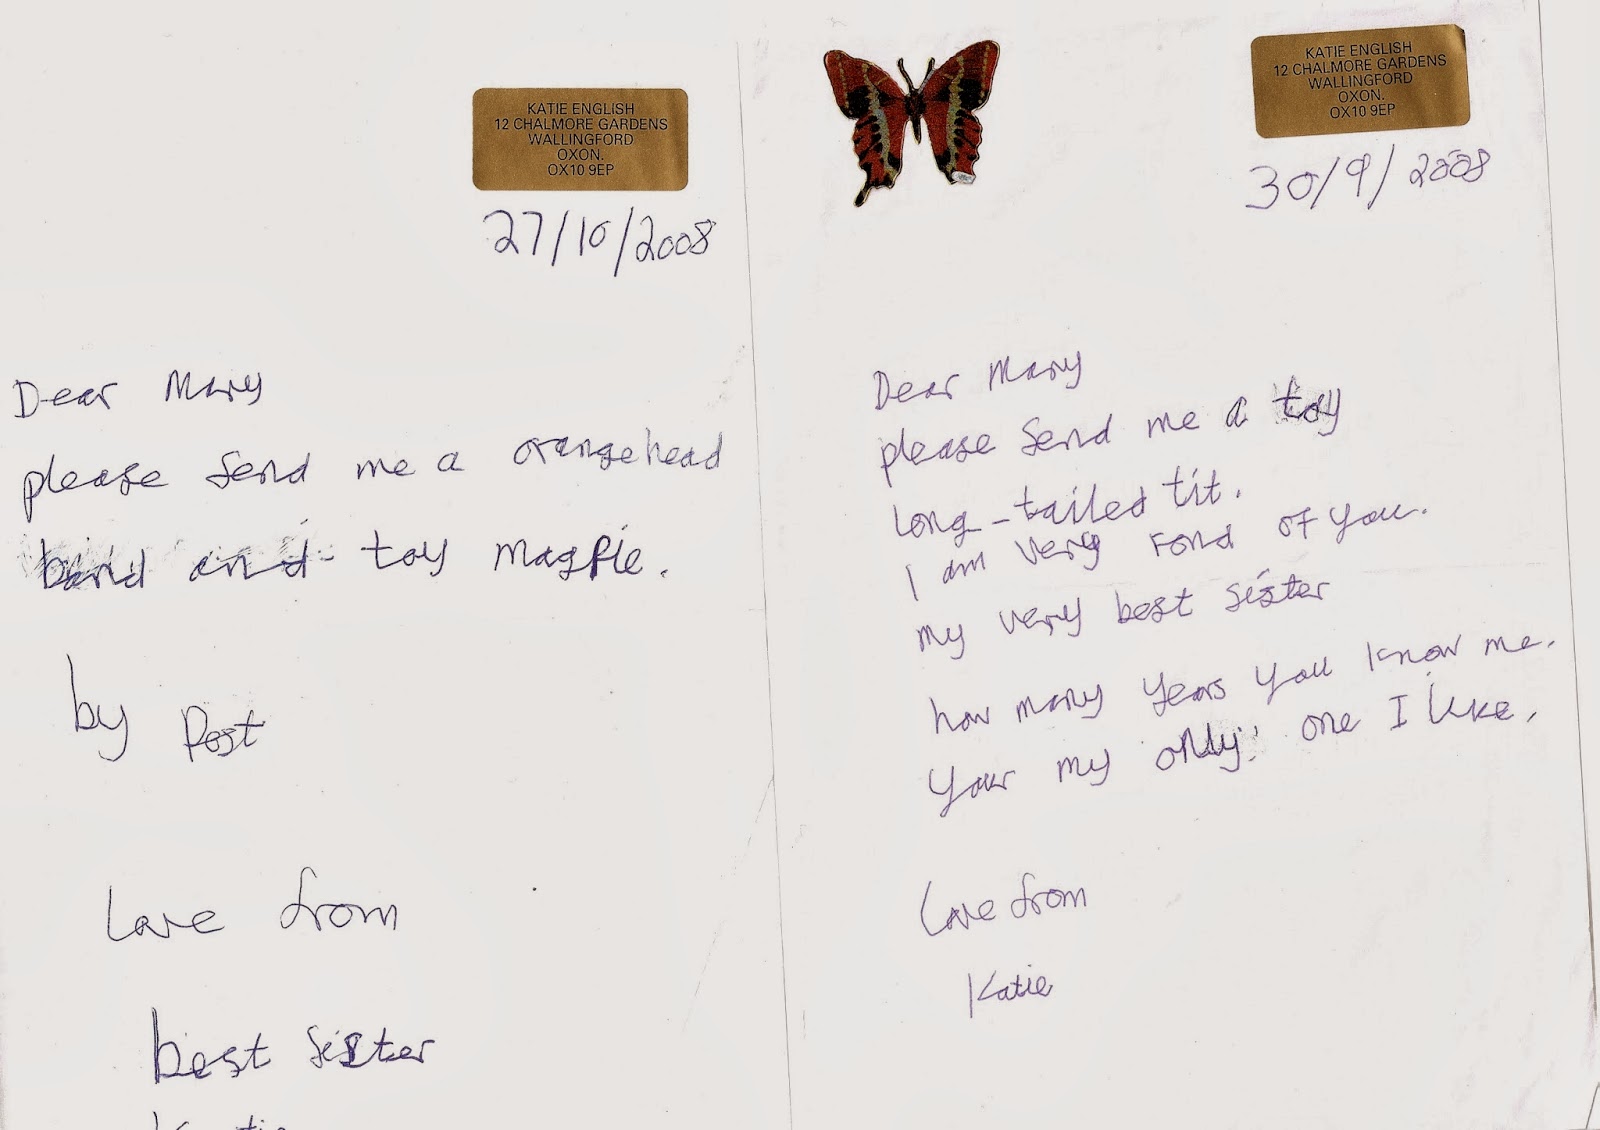 KATIE ENGLISH
12 CHALMORE GARDENS
WALLINGFORD
OXON.
OX10 9EP
27/10/2008
Dear Mary
please send me a orangehead
band and toy magpie.
by Post
Love from
best sister
Katie
KATIE ENGLISH
12 CHALMORE GARDENS
WALLINGFORD
OXON.
OX10 9EP
30/9/2008
Dear Mary
please send me a toy
long-tailed tit.
I am very fond of you.
my very best sister
how many years you know me.
your my only one I like.
Love from
Katie